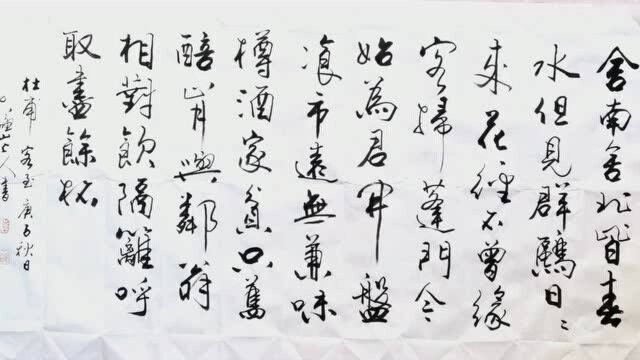 舍南舍北皆春
水但見群鷗日〻
來花徑不曾緣
客掃蓬門今
始為君開盤
飡市遠無兼味
樽酒家貧只舊
醅肯與鄰翁
相對飲隔籬呼
取盡餘杯
杜甫 客至 庚子秋日
山上人書